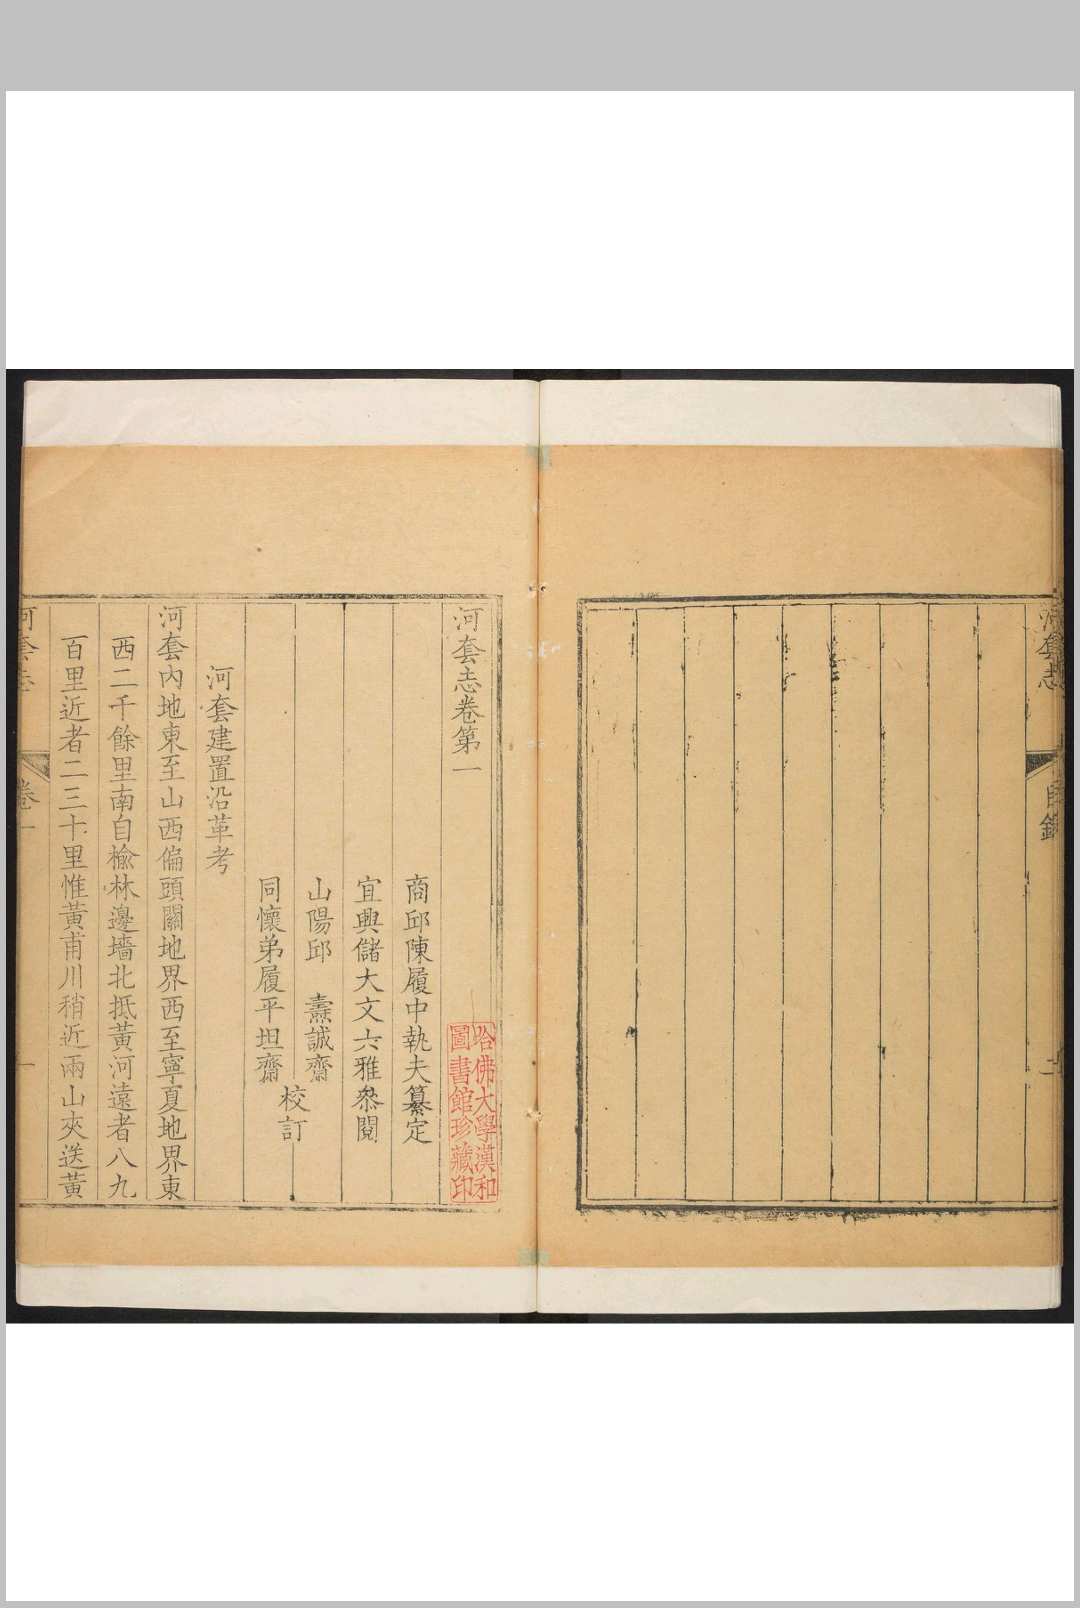 河套志
目錄
二
河套志卷第一
商邱陳履中執夫纂定
宜興儲大文六雅叅閱
山陽邱 壽誠齋
同懷弟履平坦齋
校訂
河套建置沿革考
河套內地東至山西偏頭關地界西至寧夏地界東
西二千餘里南自榆林邊墻北抵黃河遠者八九
百里近者二三十里惟黃甫川稍近兩山夾送黃
河套志
卷一
一
哈佛大學漢和
圖書館珍藏印